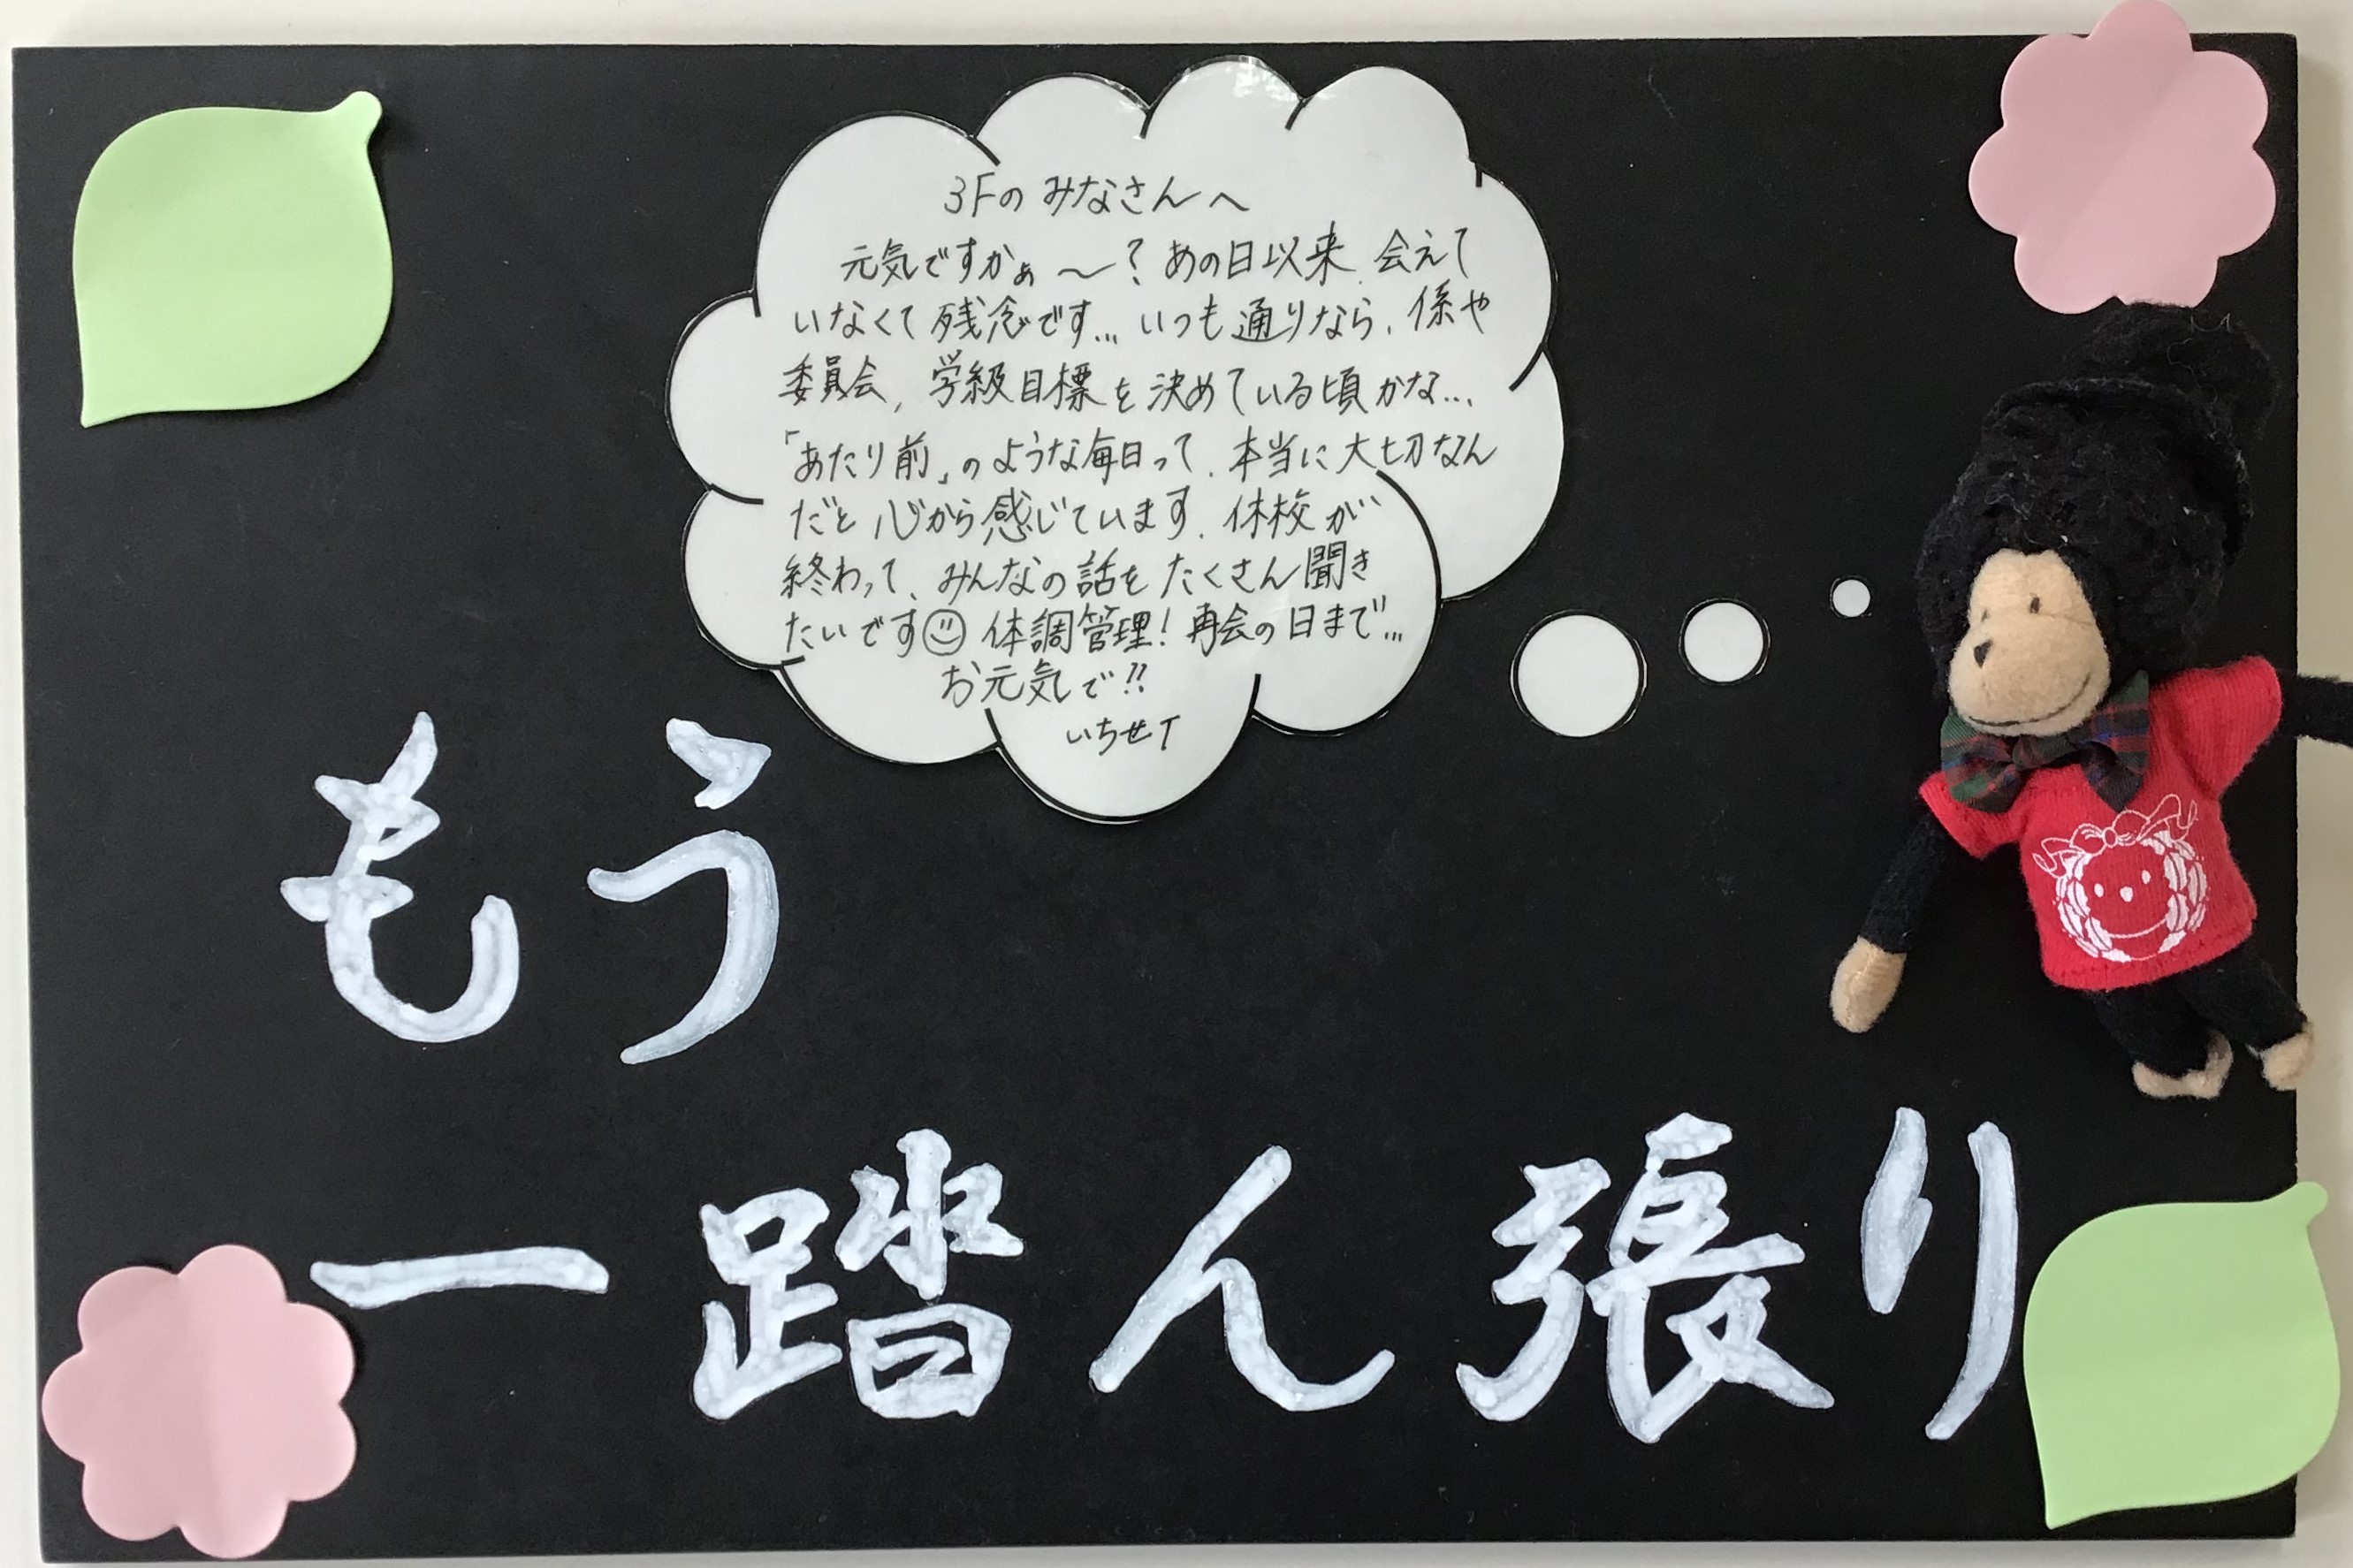 3Fのみなさんへ
元気ですかぁ〜?あの日以来、会えて
いなくて残念です…いつも通りなら、係や
委員会、学級目標を決めている頃かな…
「あたり前」のような毎日って、本当に大切なん
だと心から感じています。休校が
終わって、みんなの話をたくさん聞き
たいです☺体調管理!再会の日まで…
お元気で!!
いちせT
もう
一踏ん張り